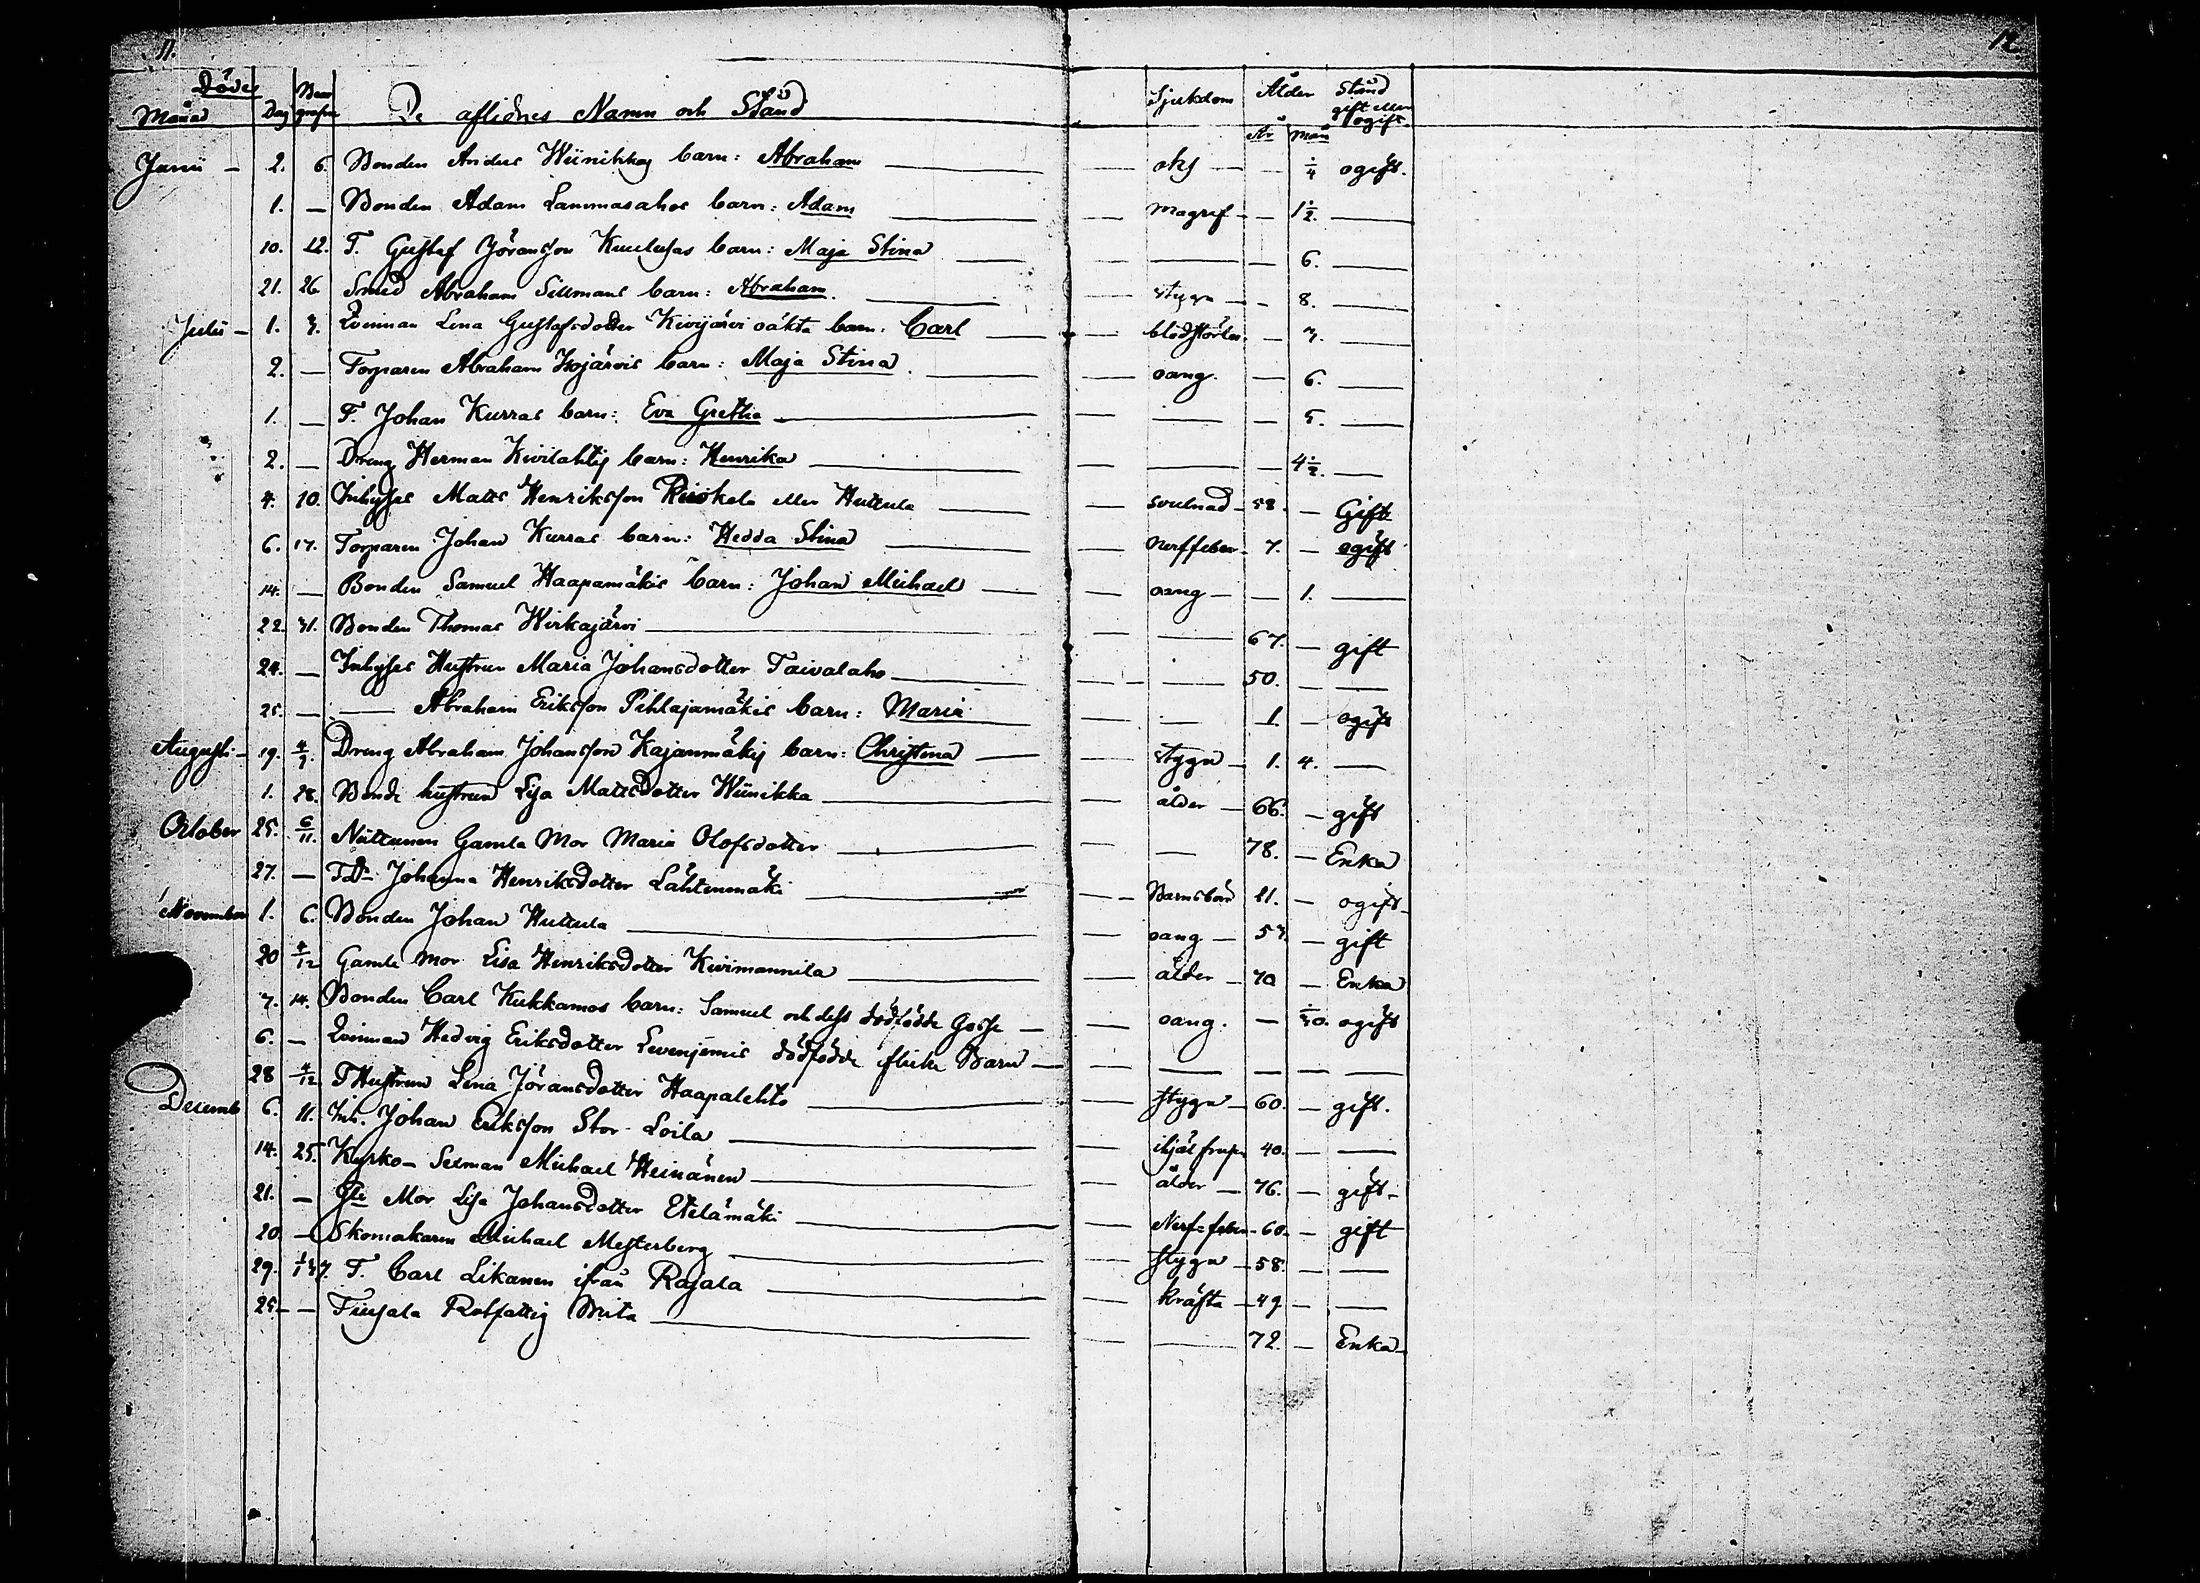 11. 12
Döde Be-
Månad Dag grafne De aflidnes Namn och Stånd Sjukdom Ålder Stånd gift eller ogift.
År mån
Junii — 2. 6. Bonden Anders Wiinikkas barn: Abraham — — — 1/4 ogift.
1. — Bonden Adam Lammasahos barn: Adam — — — 1 1/2. —
10. 12. T. Gustaf Jöransson barn: Maja Stina — — — 6. —
21. 26. Smed Abraham Sillmans barn: Abraham. — stygn — — 8. —
Julii — 1. 3. Qvinnan Lena Gustafsdotter Kivijärvi oäkta barn: Carl — — 3. —
2. — Torparen Abraham Isojärvis barn: Maja Stina. — oang. — 6. —
1. — T. Johan Kurras barn: Eva Gretha — — — 5. —
2. — Dreng Herman Kivilahtis barn: Henrika — — — 4 1/2. —
4. 10. Inhyses Matts Henriksson eller Huttula — svulnad — 58. — Gift
6. 17. Torparen Johan Kurras barn: Hedda Stina — Nerffeber — 7. — ogift
14. — Bonden Samuel Haapamäkis barn: Johan Michael — oang — — 1. —
22. 31. Bonden Thomas Wirkajärvi — — 67. — gift
24. — Inhyses Hustrun Maria Johansdotter Taivalaho — — 50. — —
25. — — Abraham Eriksson Pihlajamäkis barn: Maria — — 1. — ogift
Augusti — 19. Dreng Abraham Johansson Kajanmäkis barn: Christina — stygn — 1. 4. —
1. 28. Bonde hustrun Lisa Mattsdotter Wiinikka — ålder — 66. — gift
October 25. 6/11. Niittunen Gamla Mor Maria Olofsdotter — — 78. — Enka
27. — TDr Johanna Henriksdotter Lähtenmäki — Barnsbörd 21. — ogift —
November 1. 6. Bonden Johan Huttula — oang — 53. — gift
20 4/12 Gamla Mor Lisa Henriksdotter Kivimannila — ålder — 70 — Enka
7. 14. Bonden Carl Kukkamos barn: Samuel och dess dödfödde Gosse — oang. — 1/30. ogift
6. — Qvinnan Hedvig Eriksdotter dödfödde flicke Barn — — — — —
28 4/12 T Hustrun Lena Jöransdotter Haapalehto — stygn — 60. — gift.
Decemb 6. 11. Inh. Johan Eriksson Stor-Loila — ihjäl frusen 40. — —
14. 25. Kyrko- Michael Heinänen — ålder — 76. — gift —
21. — Gla Mor Lisa Johansdotter Etelämäki — Nerf-feber — 60. — gift
20. — Skomakaren Michael Mesterberg — stygn — 58. — —
29. T. Carl Likanen ifrån Rajala — kräfta — 49 — —
25. — — Rotfattig Brita — — 72. — Enka —